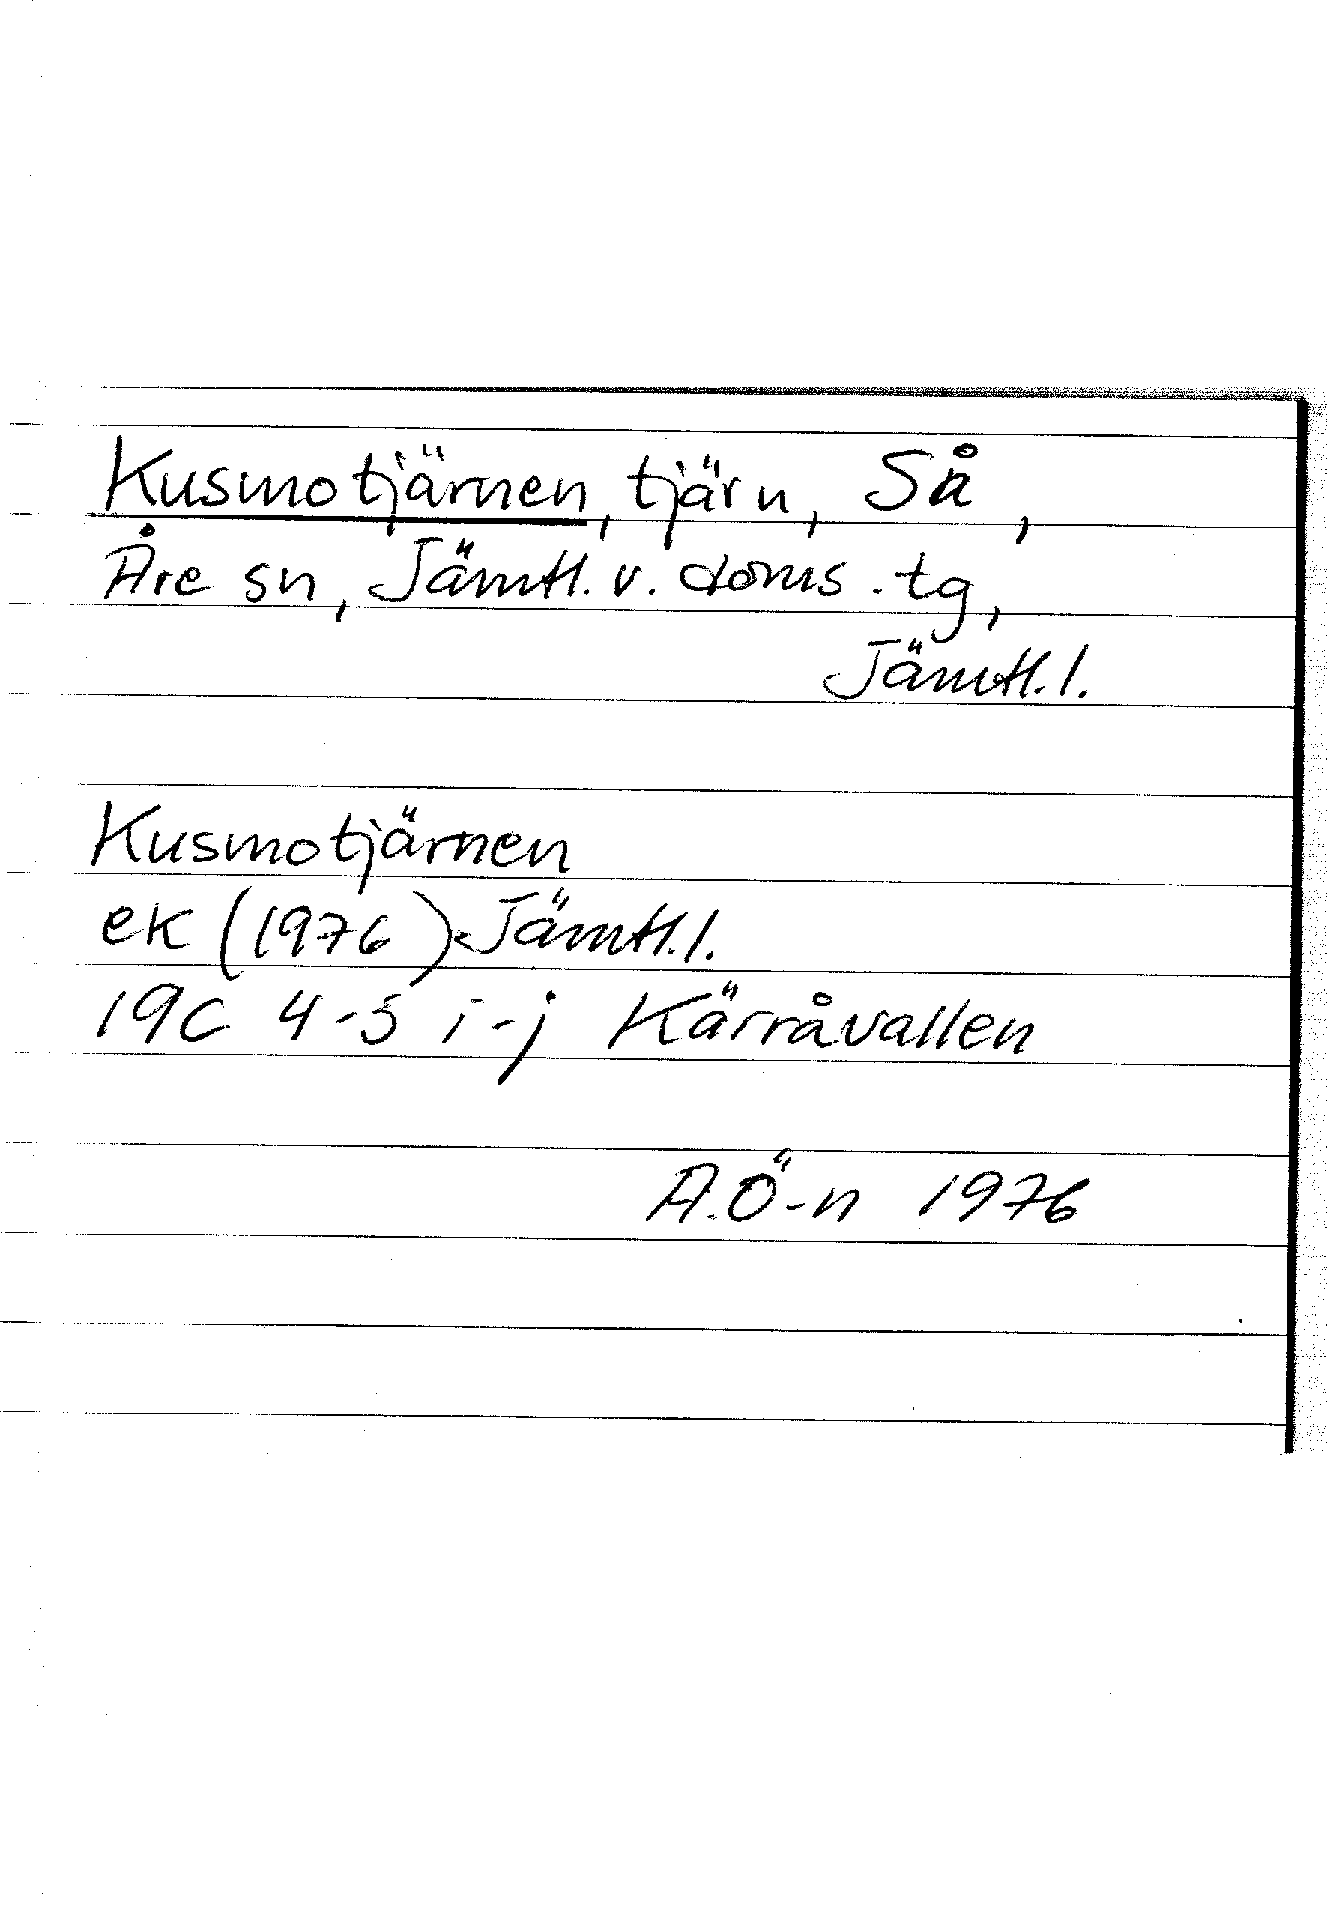 Kusmotjärnen, tjärn, Så,
Åre sn, Jämtl. v. doms. tg,
Jämtl. l.
Kusmotjärnen
ek (1976) Jämtl. l.
19C 4-5 i-j Kärråvallen
A.Ö-n 1976